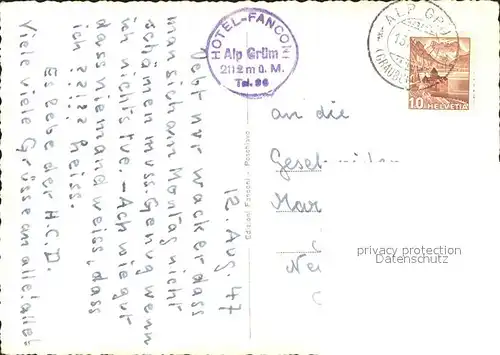 12. Aug. 47
Jetzt nur wacker dass
man sich am Montag nicht
schämen muss. Genug wenn
ich nichts tue. – Ach wie gut
dass niemand weiss, dass
ich ????? heiss.
Es lebe der H.C.D.
Viele viele Grüsse an alle! alle!
HOTEL-FANCONI
Alp Grüm
2112 m ü. M.
Tel. 86
Edizioni Fanconi - Poschiavo
ALP GRÜ
10 HELVETIA
an die
Geschwister
Mar
privacy protection
Datenschutz